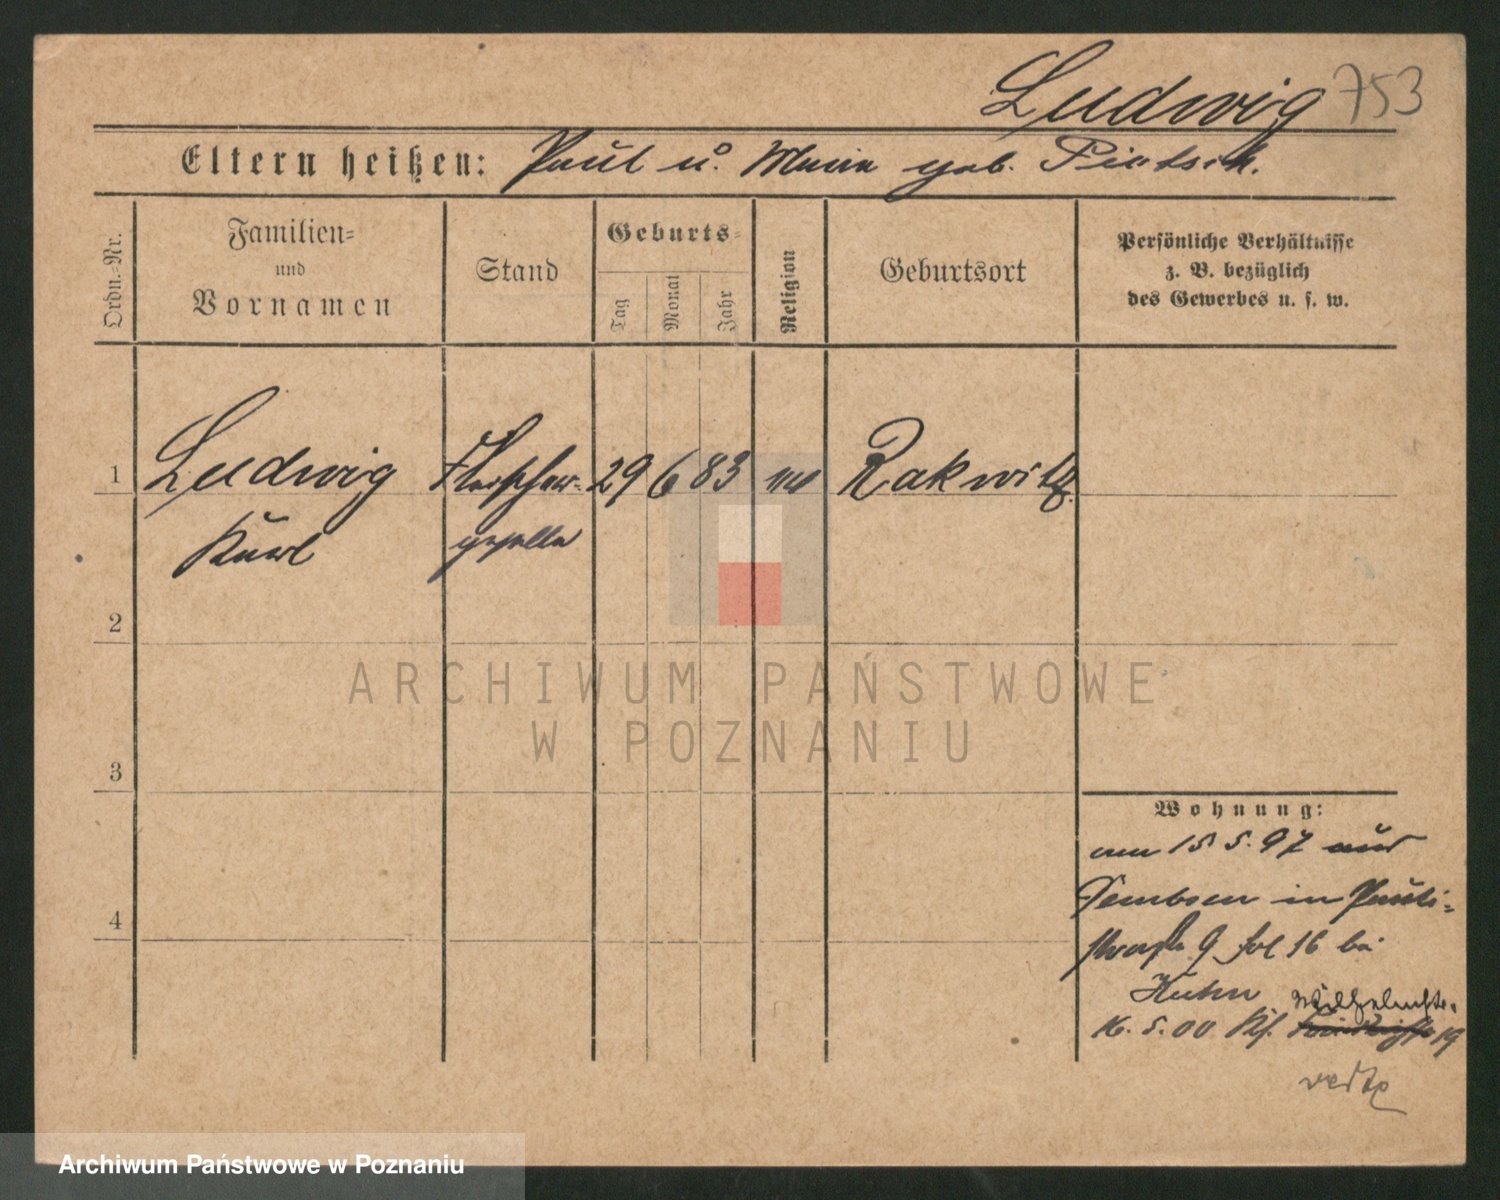 Ludwig 753
Eltern heißen: Paul u. Maria geb. Pietsch.
Ordn.=Nr.
Familien=
und
Vornamen
Stand
Geburts=
Tag
Monat
Jahr
Religion
Geburtsort
Persönliche Verhältnisse
z. B. bezüglich
des Gewerbes u. s. w.
1 Ludwig Fleischer- 29 6 83 Rakwitz.
Karl geselle
2
3
4
Wohnung:
am 15 5. 97 aus
in Pauli=
straße 9 bei
Huhn
16. 5. 00 Wilhelmstr. 19
ARCHIWUM PAŃSTWOWE
W POZNANIU
Archiwum Państwowe w Poznaniu